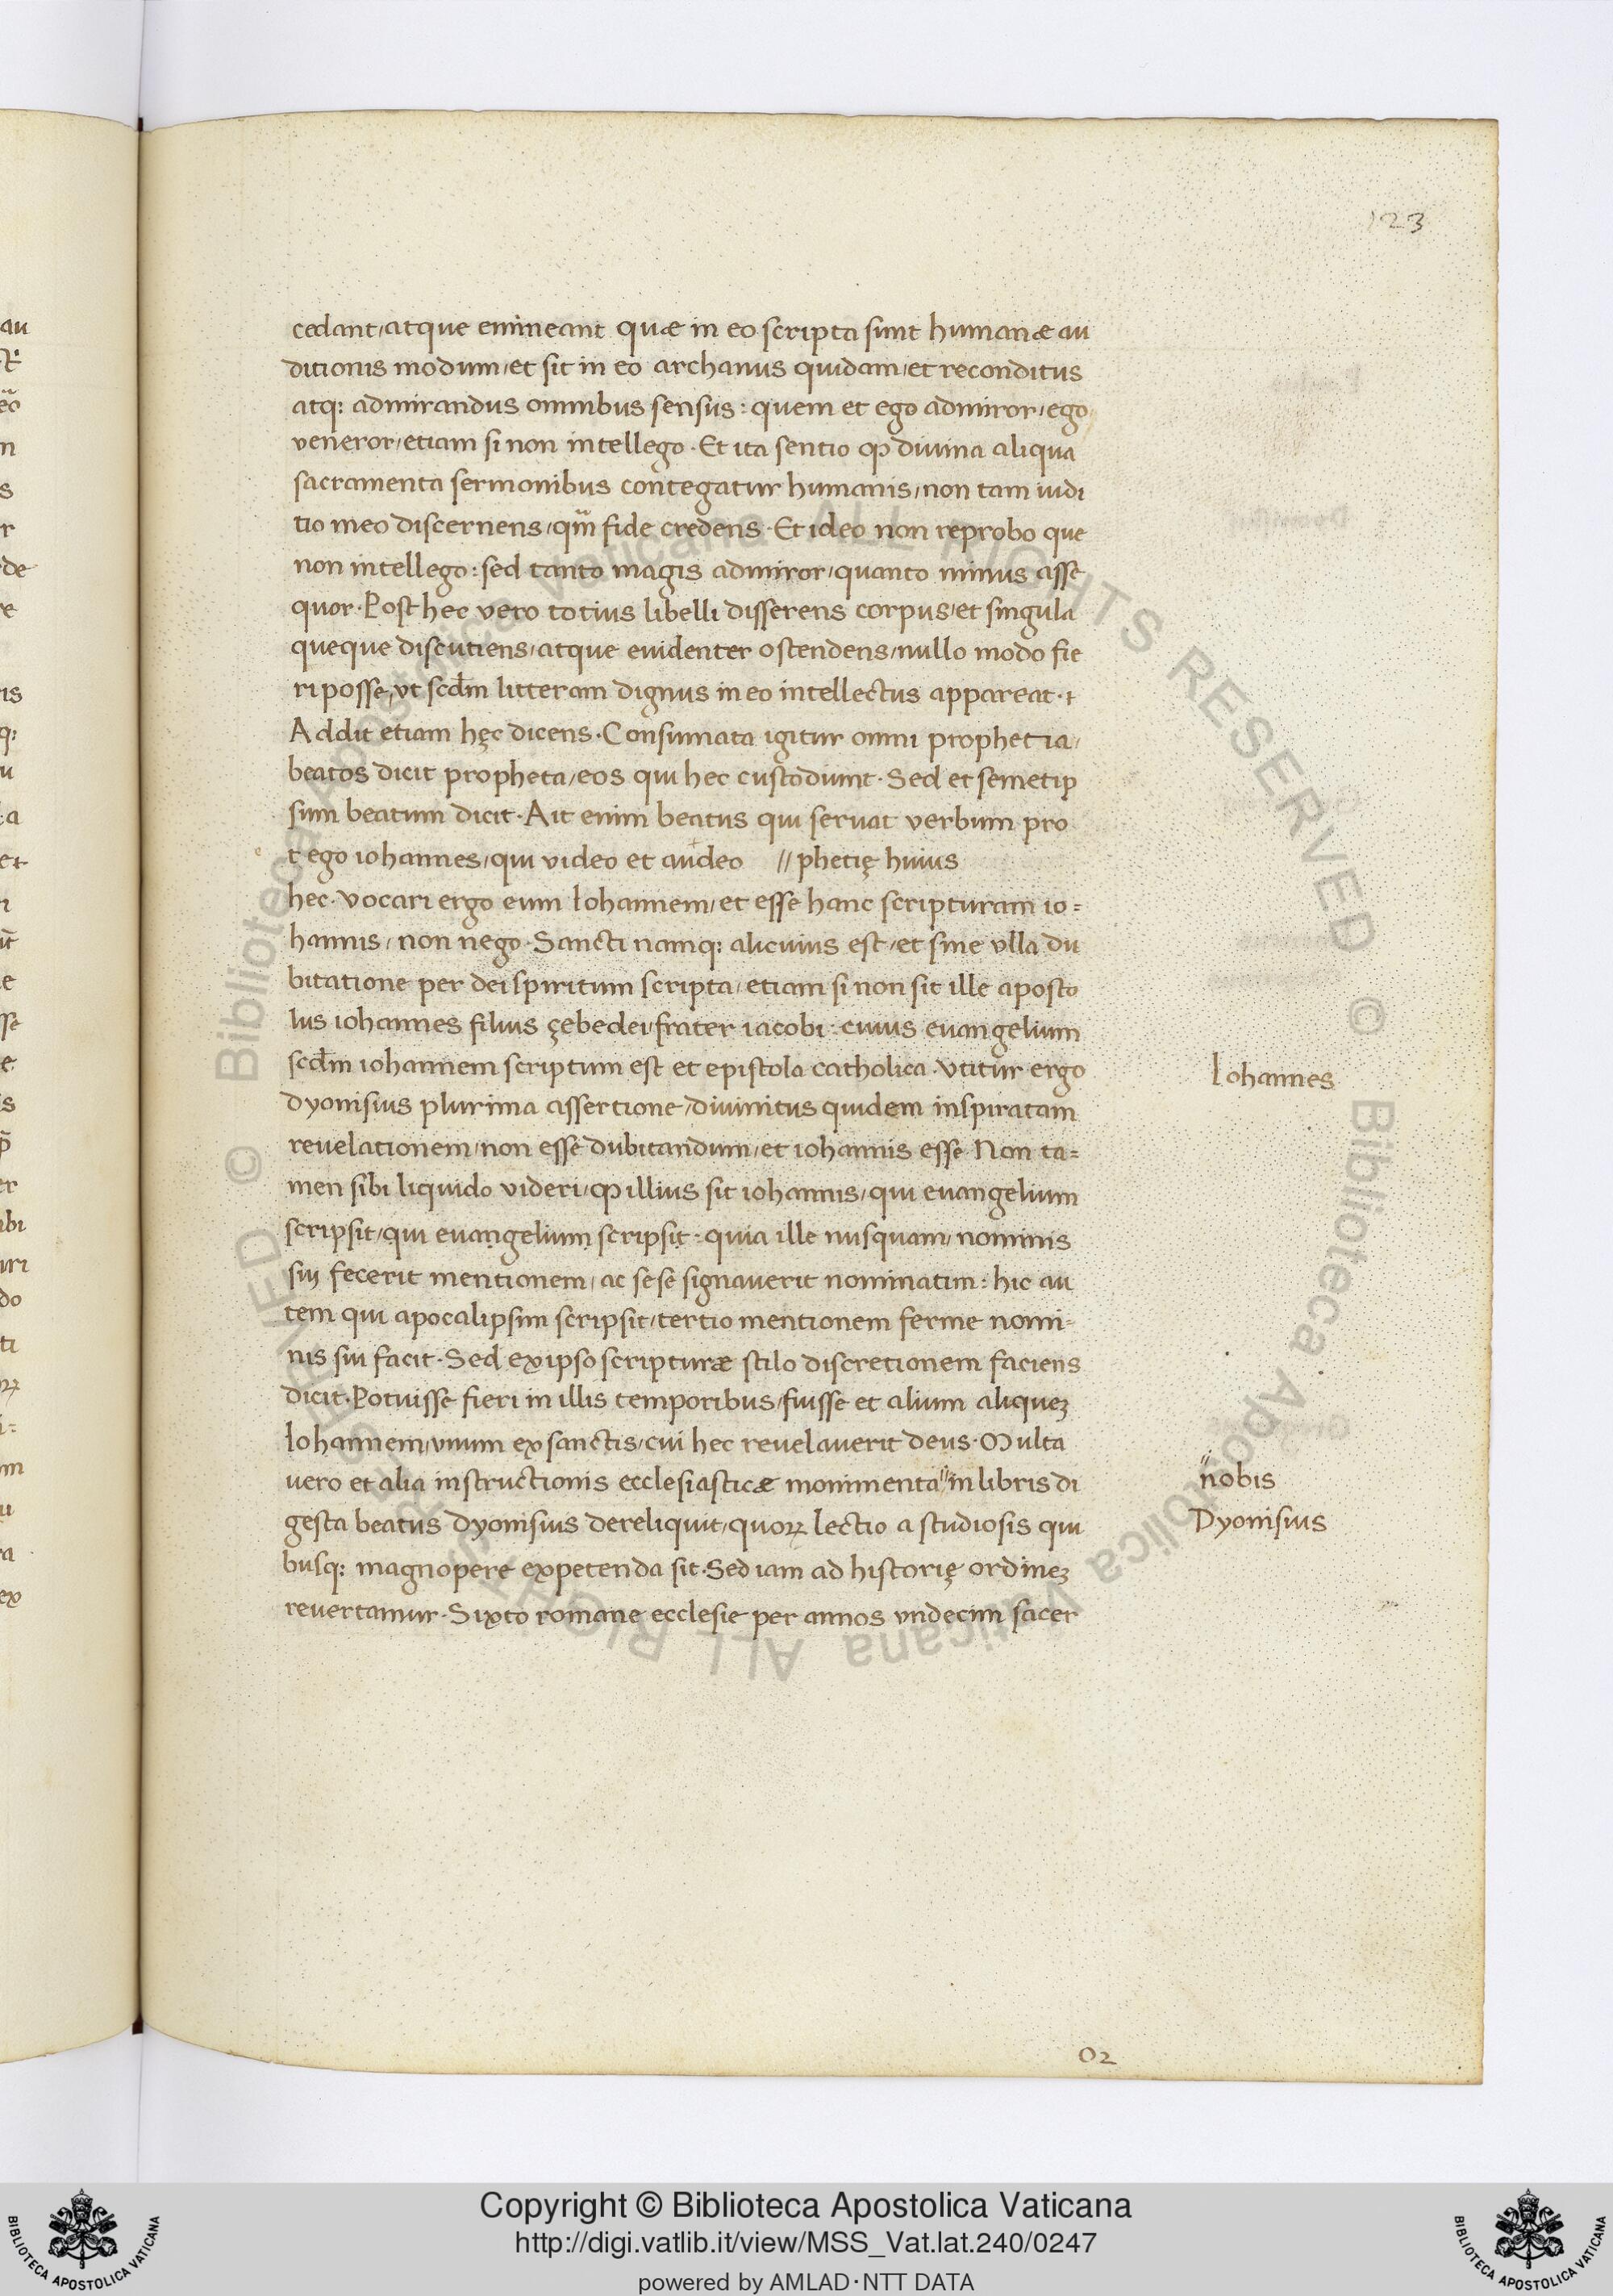 123
cedant/atque emineant quæ in eo scripta sunt humanæ au
ditionis modum/et sit in eo archanus quidam/et reconditus
atq: admirandus omnibus sensus: quem et ego admiror/ego
veneror/etiam si non intellego. Et ita sentio ꝙ divina aliqua
sacramenta sermonibus contegatur humanis/non tam iudi
tio meo discernens/qm̃ fide credens. Et ideo non reprobo que
non intellego: sed tanto magis admiror/quanto minus asse
quor. Post hec vero totius libelli disserens corpus/et singula
queque discutiens/atque euidenter ostendens/nullo modo fie
ri posse/vt scđm litteram dignus in eo intellectus appareat.
Addit etiam hęc dicens. Consumata igitur omni prophetia/
beatos dicit propheta/eos qui hec custodiunt. Sed et semetip
sum beatum dicit. Ait enim beatus qui seruat verbum pro
e t ego iohannes/qui video et audeo // phetię huius
hec. vocari ergo eum Iohannem/et esse hanc scripturam io=
hannis/non nego. Sancti namq: alicuius est/et sine vlla du
bitatione per dei spiritum scripta/etiam si non sit ille aposto
lus iohannes filius çebedei/frater iacobi: cuius euangelium
scđm iohannem scriptum est et epistola catholica. Vtitur ergo
Iohannes
dyonisius plurima assertione/divinitus quidem inspiratam
reuelationem/non esse dubitandum/et iohannis esse. Non ta=
men sibi liquido videri/ꝙ illius sit iohannis/qui euangelium
scripsit/qui euangelium scripsit: quia ille nusquam/nominis
sui fecerit mentionem/ac sese signaverit nominatim: hic au
tem qui apocalipsim scripsit/tertio mentionem ferme nomi=
nis sui facit. Sed ex ipso scripturæ stilo discretionem faciens
dicit. Potuisse fieri in illis temporibus/fuisse et alium aliqueʒ
Iohannem/vnum ex sanctis/cui hec reuelauerit deus. Multa
vero et alia instructionis ecclesiasticæ monimenta // in libris di
// nobis
gesta beatus dyonisius dereliquit/quoꝝ lectio a studiosis qui
Dyonisius
busq: magnopere expetenda sit. Sed iam ad historię ordineʒ
revertamur. Sixto romane ecclesie per annos vndecim sacer
02
Copyright © Biblioteca Apostolica Vaticana
http://digi.vatlib.it/view/MSS_Vat.lat.240/0247
powered by AMLAD·NTT DATA
BIBLIOTECA APOSTOLICA VATICANA
BIBLIOTECA APOSTOLICA VATICANA
© Biblioteca Apostolica Vaticana ALL RIGHTS RESERVED © Biblioteca Apostolica Vaticana ALL RIGHTS RESERVED